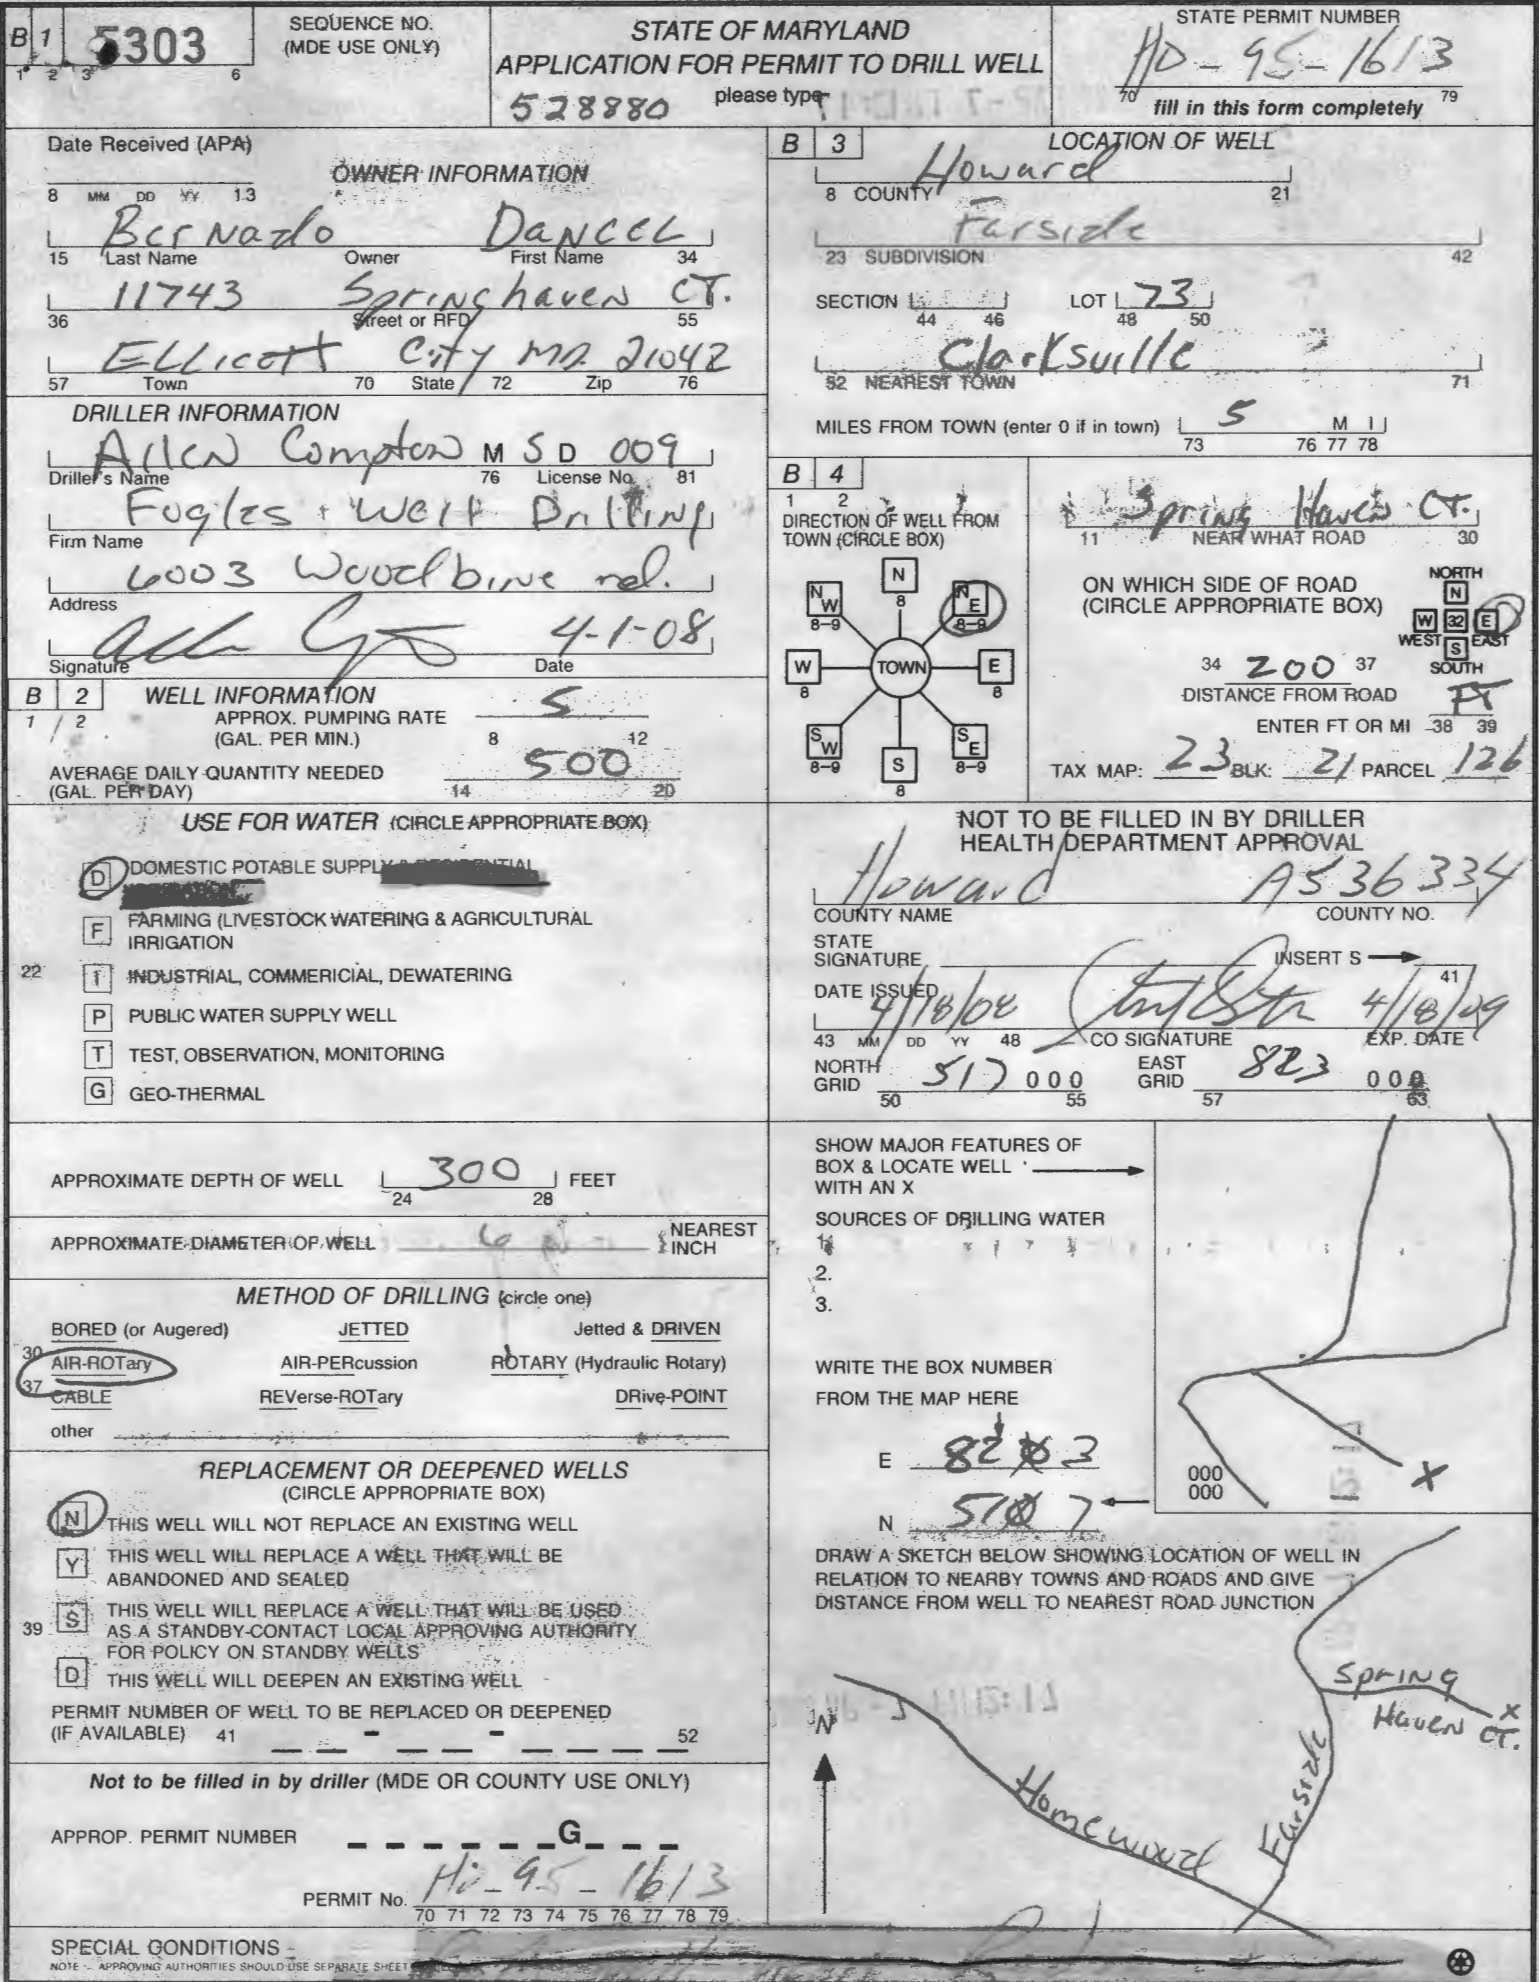 B 1 5303
1 2 3 6
SEQUENCE NO.
(MDE USE ONLY)
STATE OF MARYLAND
APPLICATION FOR PERMIT TO DRILL WELL
please type
528880
STATE PERMIT NUMBER
HO-95-1613
70 79
fill in this form completely
Date Received (APA)
8 MM DD YY 13
OWNER INFORMATION
Bernado Dancel
15 Last Name Owner First Name 34
11743 Springhaven CT.
36 Street or RFD 55
Ellicott City MD. 21042
57 Town 70 State 72 Zip 76
DRILLER INFORMATION
Allen Compton M S D 009
Driller's Name 76 License No. 81
Fogles Well Drilling
Firm Name
6003 Woodbine rd.
Address
4-1-08
Signature Date
B 2 WELL INFORMATION
1 2
APPROX. PUMPING RATE 5
(GAL. PER MIN.) 8 12
AVERAGE DAILY QUANTITY NEEDED 500
(GAL. PER DAY) 14 20
USE FOR WATER (CIRCLE APPROPRIATE BOX)
D DOMESTIC POTABLE SUPPLY & RESIDENTIAL
F FARMING (LIVESTOCK WATERING & AGRICULTURAL
IRRIGATION
22 I INDUSTRIAL, COMMERICIAL, DEWATERING
P PUBLIC WATER SUPPLY WELL
T TEST, OBSERVATION, MONITORING
G GEO-THERMAL
APPROXIMATE DEPTH OF WELL 300 FEET
24 28
APPROXIMATE DIAMETER OF WELL 6 NEAREST
INCH
METHOD OF DRILLING (circle one)
BORED (or Augered) JETTED Jetted & DRIVEN
30 AIR-ROTary AIR-PERcussion ROTARY (Hydraulic Rotary)
37 CABLE REVerse-ROTary DRive-POINT
other
REPLACEMENT OR DEEPENED WELLS
(CIRCLE APPROPRIATE BOX)
N THIS WELL WILL NOT REPLACE AN EXISTING WELL
Y THIS WELL WILL REPLACE A WELL THAT WILL BE
ABANDONED AND SEALED
39 S THIS WELL WILL REPLACE A WELL THAT WILL BE USED
AS A STANDBY-CONTACT LOCAL APPROVING AUTHORITY
FOR POLICY ON STANDBY WELLS
D THIS WELL WILL DEEPEN AN EXISTING WELL
PERMIT NUMBER OF WELL TO BE REPLACED OR DEEPENED
(IF AVAILABLE) 41 - - 52
Not to be filled in by driller (MDE OR COUNTY USE ONLY)
APPROP. PERMIT NUMBER G
PERMIT No. HO-95-1613
70 71 72 73 74 75 76 77 78 79
SPECIAL CONDITIONS
NOTE - APPROVING AUTHORITIES SHOULD USE SEPARATE SHEET
B 3 LOCATION OF WELL
Howard
8 COUNTY 21
Farside
23 SUBDIVISION 42
SECTION LOT 73
44 46 48 50
Clarksville
52 NEAREST TOWN 71
MILES FROM TOWN (enter 0 if in town) 5 M I
73 76 77 78
B 4
1 2
DIRECTION OF WELL FROM
TOWN (CIRCLE BOX)
N
8
NW NE
8-9 8-9
W TOWN E
8 8
SW SE
8-9 8-9
S
8
Spring Haven CT.
11 NEAR WHAT ROAD 30
ON WHICH SIDE OF ROAD
(CIRCLE APPROPRIATE BOX)
NORTH
N
W 32 E
WEST S EAST
SOUTH
34 200 37
DISTANCE FROM ROAD
ENTER FT OR MI FT
38 39
TAX MAP: 23 BLK: 21 PARCEL 126
NOT TO BE FILLED IN BY DRILLER
HEALTH DEPARTMENT APPROVAL
Howard A536334
COUNTY NAME COUNTY NO.
STATE
SIGNATURE INSERT S
41
DATE ISSUED
4/18/08 4/18/09
43 MM DD YY 48 CO SIGNATURE EXP. DATE
NORTH
GRID 517 000
50 55
EAST
GRID 823 000
57 63
SHOW MAJOR FEATURES OF
BOX & LOCATE WELL
WITH AN X
SOURCES OF DRILLING WATER
1.
2.
3.
WRITE THE BOX NUMBER
FROM THE MAP HERE
E 823
N 517
000
000
X
DRAW A SKETCH BELOW SHOWING LOCATION OF WELL IN
RELATION TO NEARBY TOWNS AND ROADS AND GIVE
DISTANCE FROM WELL TO NEAREST ROAD JUNCTION
N
Spring
Haven CT.
X
Homewood
Farside